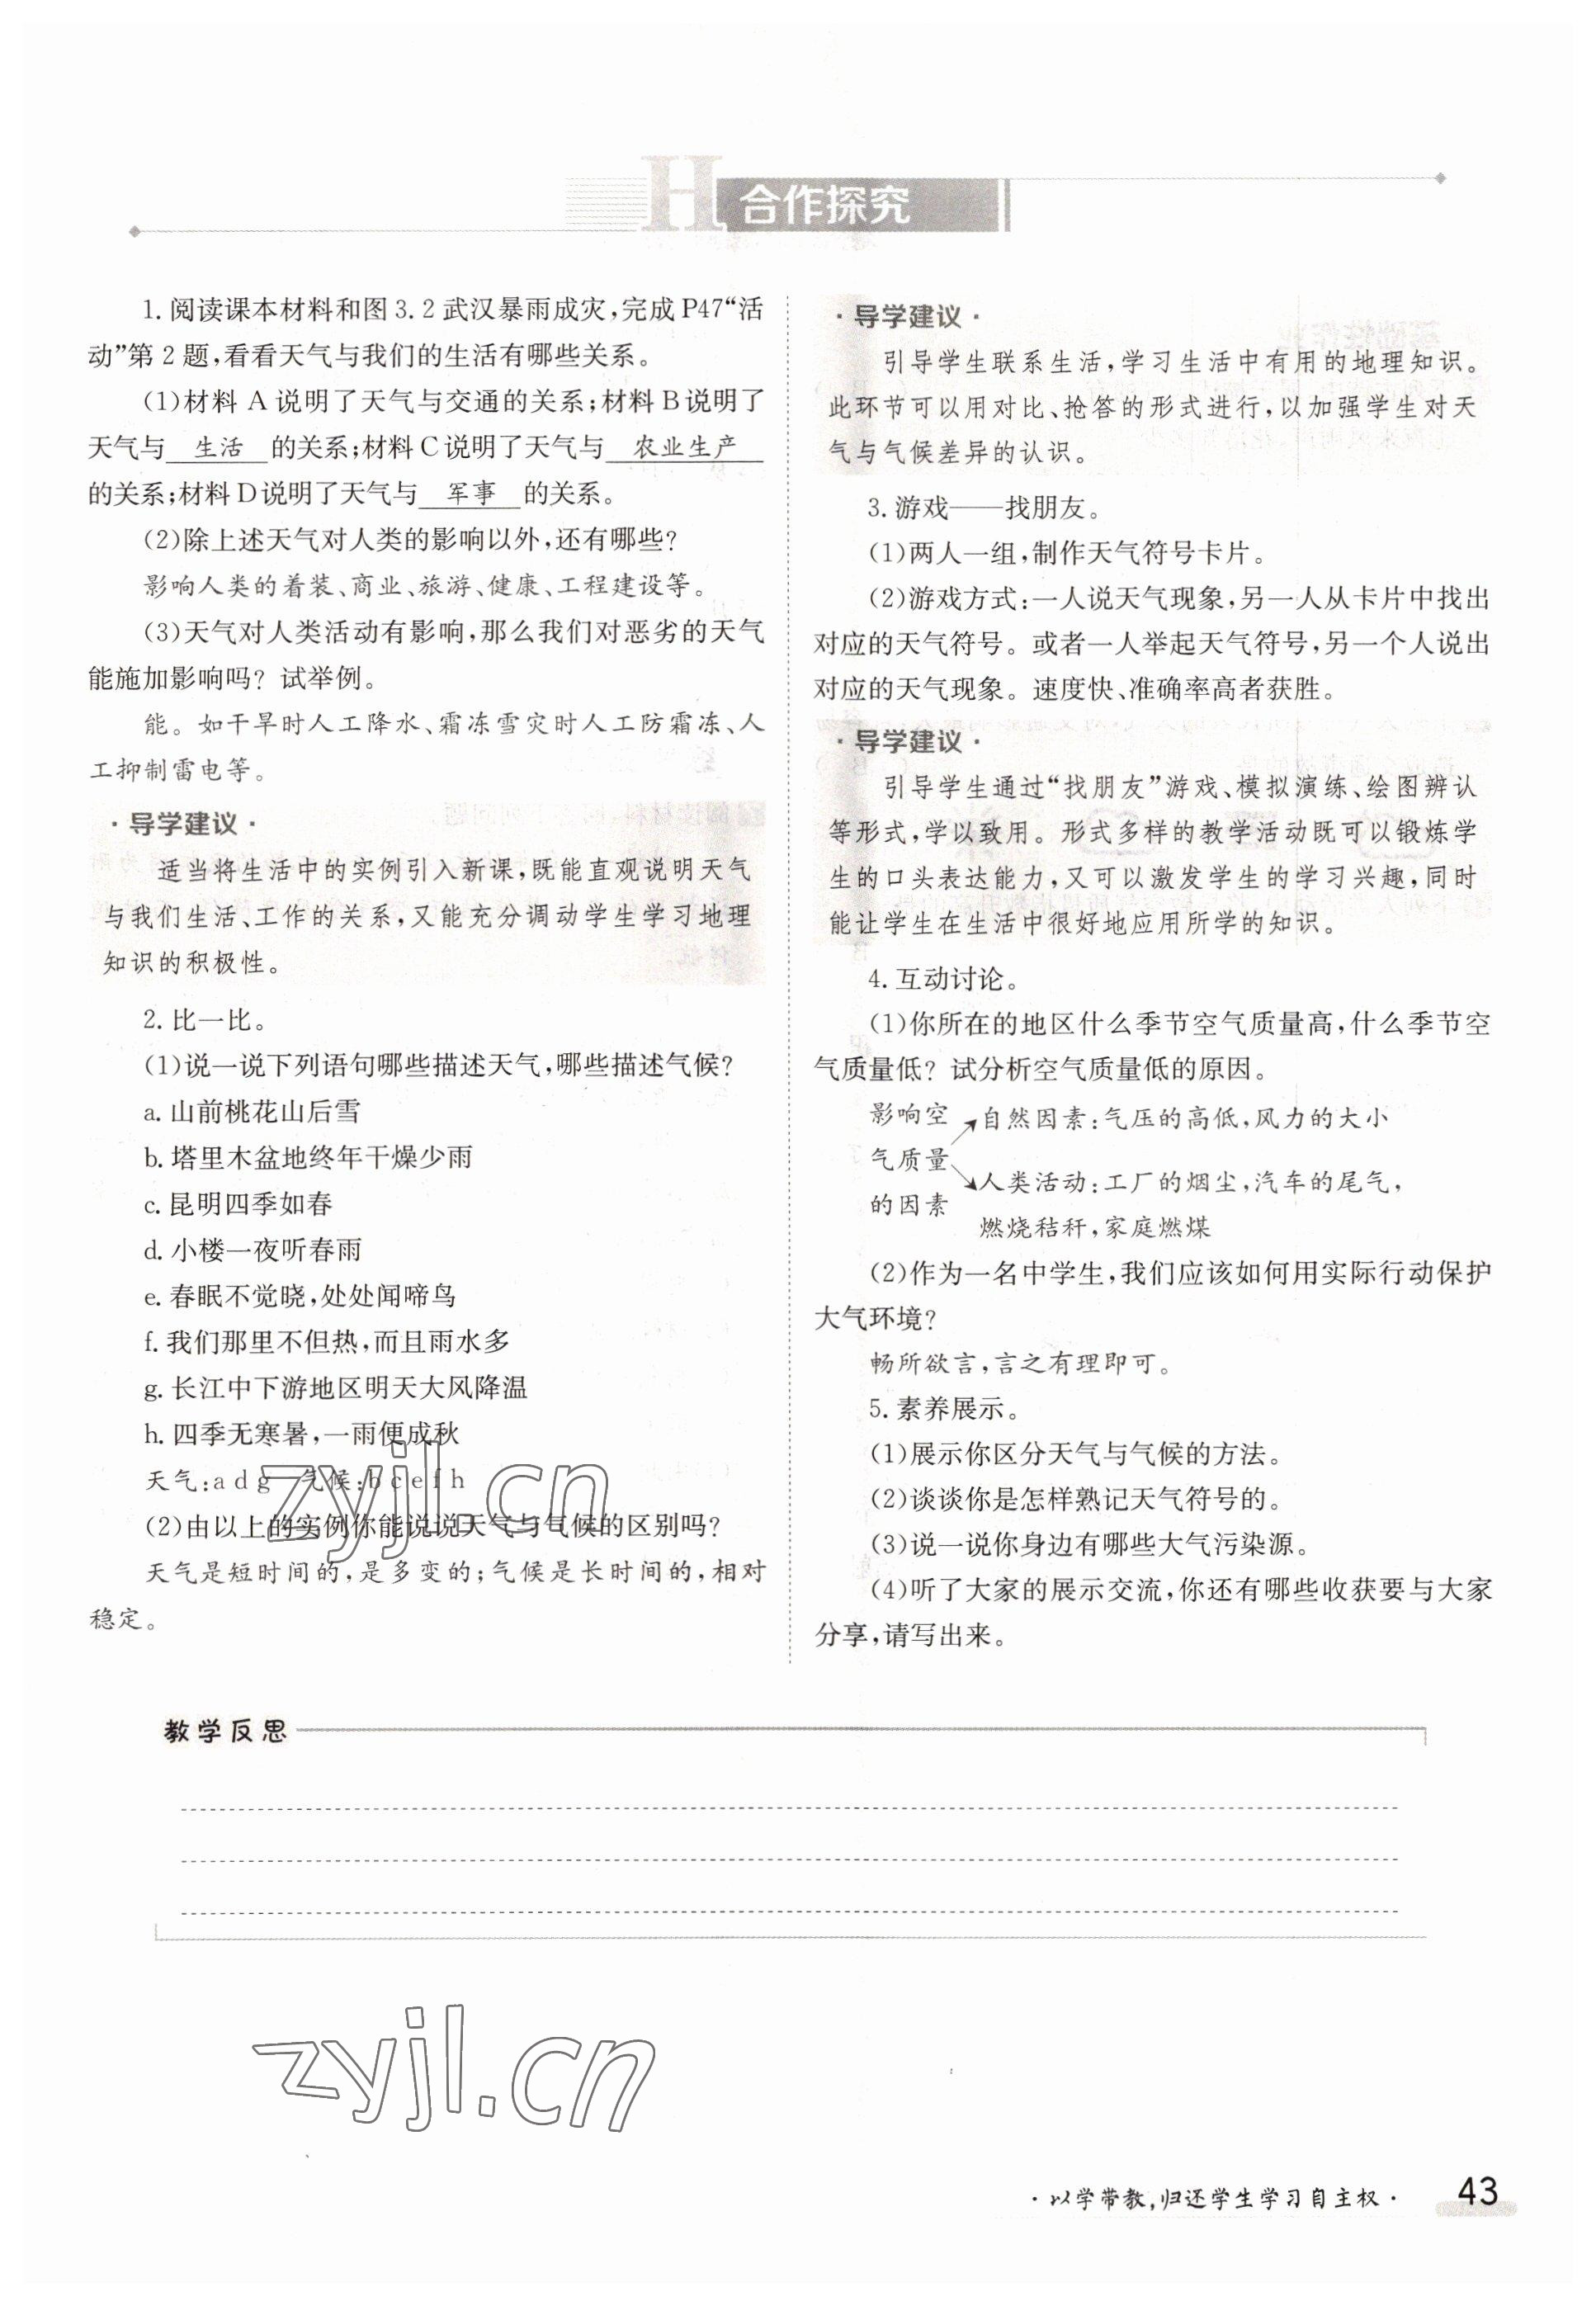 H 合作探究
1. 阅读课本材料和图 3.2 武汉暴雨成灾,完成 P47“活
动”第 2 题,看看天气与我们的生活有哪些关系。
(1)材料 A 说明了天气与交通的关系;材料 B 说明了
天气与 生活 的关系;材料 C 说明了天气与 农业生产
的关系;材料 D 说明了天气与 军事 的关系。
(2)除上述天气对人类的影响以外,还有哪些?
影响人类的着装、商业、旅游、健康、工程建设等。
(3)天气对人类活动有影响,那么我们对恶劣的天气
能施加影响吗? 试举例。
能。如干旱时人工降水、霜冻雪灾时人工防霜冻、人
工抑制雷电等。
·导学建议·
适当将生活中的实例引入新课,既能直观说明天气
与我们生活、工作的关系,又能充分调动学生学习地理
知识的积极性。
2. 比一比。
(1)说一说下列语句哪些描述天气,哪些描述气候?
a. 山前桃花山后雪
b. 塔里木盆地终年干燥少雨
c. 昆明四季如春
d. 小楼一夜听春雨
e. 春眠不觉晓,处处闻啼鸟
f. 我们那里不但热,而且雨水多
g. 长江中下游地区明天大风降温
h. 四季无寒暑,一雨便成秋
天气:a d g 气候:b c e f h
(2)由以上的实例你能说说天气与气候的区别吗?
天气是短时间的,是多变的;气候是长时间的,相对
稳定。
·导学建议·
引导学生联系生活,学习生活中有用的地理知识。
此环节可以用对比、抢答的形式进行,以加强学生对天
气与气候差异的认识。
3. 游戏——找朋友。
(1)两人一组,制作天气符号卡片。
(2)游戏方式:一人说天气现象,另一人从卡片中找出
对应的天气符号。或者一人举起天气符号,另一个人说出
对应的天气现象。速度快、准确率高者获胜。
·导学建议·
引导学生通过“找朋友”游戏、模拟演练、绘图辨认
等形式,学以致用。形式多样的教学活动既可以锻炼学
生的口头表达能力,又可以激发学生的学习兴趣,同时
能让学生在生活中很好地应用所学的知识。
4. 互动讨论。
(1)你所在的地区什么季节空气质量高,什么季节空
气质量低? 试分析空气质量低的原因。
影响空
气质量
的因素
自然因素:气压的高低,风力的大小
人类活动:工厂的烟尘,汽车的尾气,
燃烧秸秆,家庭燃煤
(2)作为一名中学生,我们应该如何用实际行动保护
大气环境?
畅所欲言,言之有理即可。
5. 素养展示。
(1)展示你区分天气与气候的方法。
(2)谈谈你是怎样熟记天气符号的。
(3)说一说你身边有哪些大气污染源。
(4)听了大家的展示交流,你还有哪些收获要与大家
分享,请写出来。
zyjl.cn
教学反思
zyjl.cn
·以学带教,归还学生学习自主权·
43